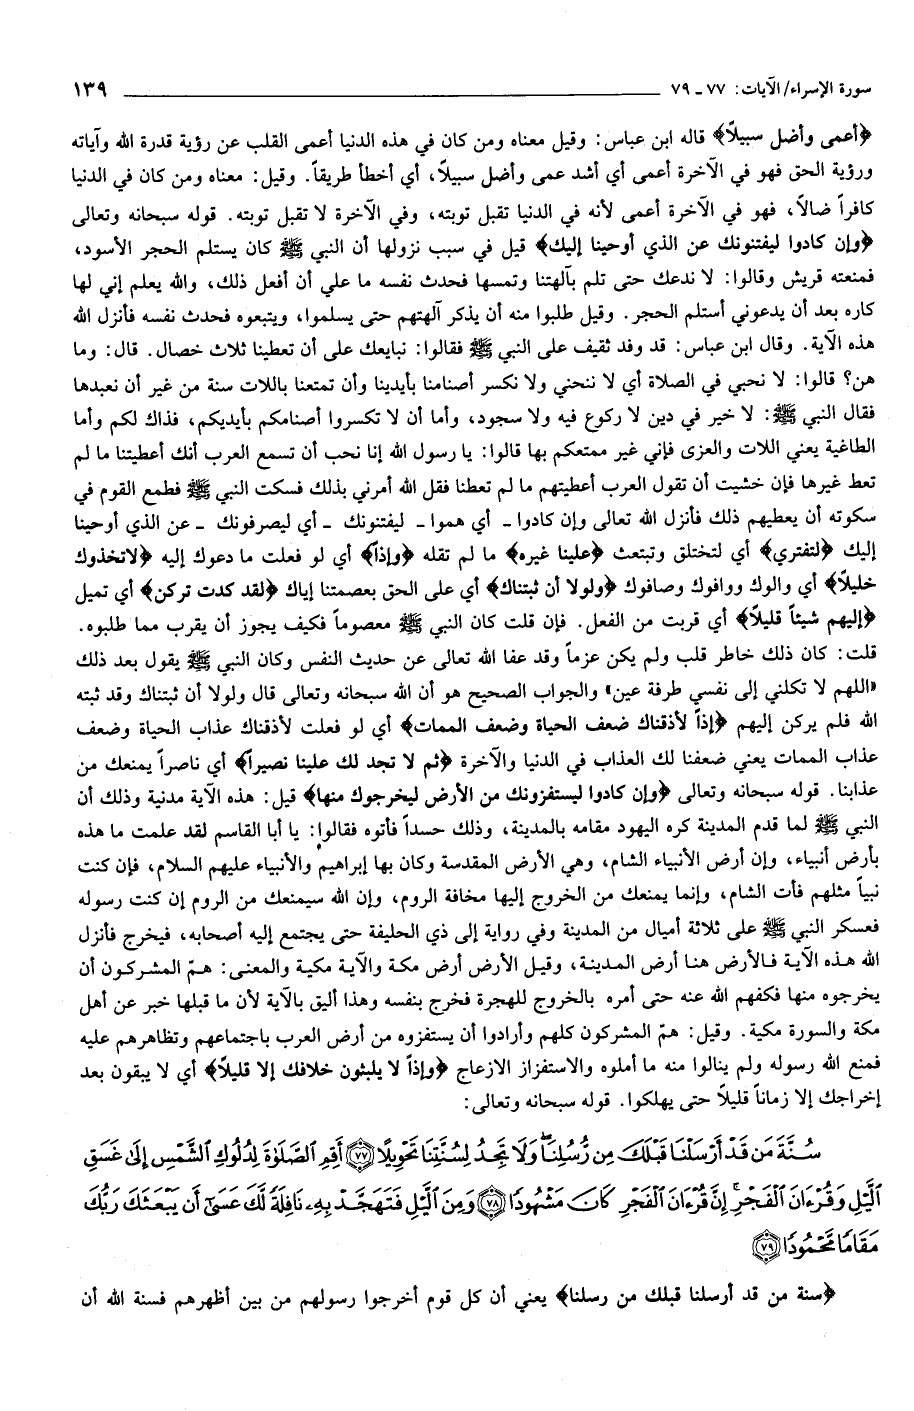 سورة الإسراء/ الآيات: ٧٧ ـ ٧٩ ١٣٩
﴿أعمى وأضل سبيلاً﴾ قاله ابن عباس: وقيل معناه ومن كان في هذه الدنيا أعمى القلب عن رؤية قدرة الله وآياته
ورؤية الحق فهو في الآخرة أعمى أي أشد عمى وأضل سبيلاً، أي أخطأ طريقاً. وقيل: معناه ومن كان في الدنيا
كافراً ضالاً، فهو في الآخرة أعمى لأنه في الدنيا تقبل توبته، وفي الآخرة لا تقبل توبته. قوله سبحانه وتعالى
﴿وإن كادوا ليفتنونك عن الذي أوحينا إليك﴾ قيل في سبب نزولها أن النبي ﷺ كان يستلم الحجر الأسود،
فمنعته قريش وقالوا: لا ندعك حتى تلم بآلهتنا وتمسها فحدث نفسه ما علي أن أفعل ذلك، والله يعلم إني لها
كاره بعد أن يدعوني أستلم الحجر. وقيل طلبوا منه أن يذكر آلهتهم حتى يسلموا، ويتبعوه فحدث نفسه فأنزل الله
هذه الآية. وقال ابن عباس: قد وفد ثقيف على النبي ﷺ فقالوا: نبايعك على أن تعطينا ثلاث خصال. قال: وما
هن؟ قالوا: لا نحبي في الصلاة أي لا ننحني ولا نكسر أصنامنا بأيدينا وأن تمتعنا باللات سنة من غير أن نعبدها
فقال النبي ﷺ: لا خير في دين لا ركوع فيه ولا سجود، وأما أن لا تكسروا أصنامكم بأيديكم، فذاك لكم وأما
الطاغية يعني اللات والعزى فإني غير ممتعكم بها قالوا: يا رسول الله إنا نحب أن تسمع العرب أنك أعطيتنا ما لم
تعط غيرها فإن خشيت أن تقول العرب أعطيتهم ما لم تعطنا فقل الله أمرني بذلك فسكت النبي ﷺ فطمع القوم في
سكوته أن يعطيهم ذلك فأنزل الله تعالى وإن كادوا ـ أي هموا ـ ليفتنونك ـ أي ليصرفونك ـ عن الذي أوحينا
إليك ﴿لتفتري﴾ أي لتختلق وتبتعث ﴿علينا غيره﴾ ما لم تقله ﴿وإذاً﴾ أي لو فعلت ما دعوك إليه ﴿لاتخذوك
خليلاً﴾ أي والوك ووافوك وصافوك ﴿ولولا أن ثبتناك﴾ أي على الحق بعصمتنا إياك ﴿لقد كدت تركن﴾ أي تميل
﴿إليهم شيئاً قليلاً﴾ أي قربت من الفعل. فإن قلت كان النبي ﷺ معصوماً فكيف يجوز أن يقرب مما طلبوه.
قلت: كان ذلك خاطر قلب ولم يكن عزماً وقد عفا الله تعالى عن حديث النفس وكان النبي ﷺ يقول بعد ذلك
«اللهم لا تكلني إلى نفسي طرفة عين» والجواب الصحيح هو أن الله سبحانه وتعالى قال ولولا أن ثبتناك وقد ثبته
الله فلم يركن إليهم ﴿إذاً لأذقناك ضعف الحياة وضعف الممات﴾ أي لو فعلت لأذقناك عذاب الحياة وضعف
عذاب الممات يعني ضعفنا لك العذاب في الدنيا والآخرة ﴿ثم لا تجد لك علينا نصيراً﴾ أي ناصراً يمنعك من
عذابنا. قوله سبحانه وتعالى ﴿وإن كادوا ليستفزونك من الأرض ليخرجوك منها﴾ قيل: هذه الآية مدنية وذلك أن
النبي ﷺ لما قدم المدينة كره اليهود مقامه بالمدينة، وذلك حسداً فأتوه فقالوا: يا أبا القاسم لقد علمت ما هذه
بأرض أنبياء، وإن أرض الأنبياء الشام، وهي الأرض المقدسة وكان بها إبراهيم والأنبياء عليهم السلام، فإن كنت
نبياً مثلهم فأت الشام، وإنما يمنعك من الخروج إليها مخافة الروم، وإن الله سيمنعك من الروم إن كنت رسوله
فعسكر النبي ﷺ على ثلاثة أميال من المدينة وفي رواية إلى ذي الحليفة حتى يجتمع إليه أصحابه، فيخرج فأنزل
الله هذه الآية فالأرض هنا أرض المدينة، وقيل الأرض أرض مكة والآية مكية والمعنى: همّ المشركون أن
يخرجوه منها فكفهم الله عنه حتى أمره بالخروج للهجرة فخرج بنفسه وهذا أليق بالآية لأن ما قبلها خبر عن أهل
مكة والسورة مكية. وقيل: همّ المشركون كلهم وأرادوا أن يستفزوه من أرض العرب باجتماعهم وتظاهرهم عليه
فمنع الله رسوله ولم ينالوا منه ما أملوه والاستفزاز الازعاج ﴿وإذاً لا يلبثون خلافك إلا قليلاً﴾ أي لا يبقون بعد
إخراجك إلا زماناً قليلاً حتى يهلكوا. قوله سبحانه وتعالى:
سُنَّةَ مَن قَدْ أَرْسَلْنَا قَبْلَكَ مِن رُّسُلِنَا ۖ وَلَا تَجِدُ لِسُنَّتِنَا تَحْوِيلًا ﴿٧٧﴾ أَقِمِ الصَّلَوٰةَ لِدُلُوكِ الشَّمْسِ إِلَىٰ غَسَقِ
الَّيْلِ وَقُرْءَانَ الْفَجْرِ ۖ إِنَّ قُرْءَانَ الْفَجْرِ كَانَ مَشْهُودًا ﴿٧٨﴾ وَمِنَ الَّيْلِ فَتَهَجَّدْ بِهِۦ نَافِلَةً لَّكَ عَسَىٰٓ أَن يَبْعَثَكَ رَبُّكَ
مَقَامًا مَّحْمُودًا ﴿٧٩﴾
﴿سنة من قد أرسلنا قبلك من رسلنا﴾ يعني أن كل قوم أخرجوا رسولهم من بين أظهرهم فسنة الله أن